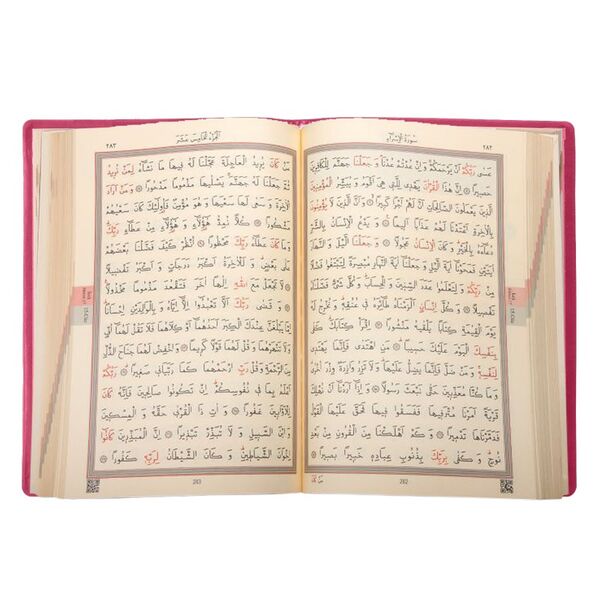 ٢٨٢
سُورَةُ الْاِسْرَاءِ
عَسٰى رَبُّكُمْ اَنْ يَرْحَمَكُمْ وَاِنْ عُدْتُمْ عُدْنَا وَجَعَلْنَا جَهَنَّمَ لِلْكَافِرِينَ
حَصِيرًا ۝ اِنَّ هٰذَا الْقُرْاٰنَ يَهْدِي لِلَّتِي هِيَ اَقْوَمُ وَيُبَشِّرُ الْمُؤْمِنِينَ
الَّذِينَ يَعْمَلُونَ الصَّالِحَاتِ اَنَّ لَهُمْ اَجْرًا كَبِيرًا ۝ وَاَنَّ الَّذِينَ لَا يُؤْمِنُونَ
بِالْاٰخِرَةِ اَعْتَدْنَا لَهُمْ عَذَابًا اَلِيمًا ۝ وَيَدْعُ الْاِنْسَانُ بِالشَّرِّ
دُعَاءَهُ بِالْخَيْرِ وَكَانَ الْاِنْسَانُ عَجُولًا ۝ وَجَعَلْنَا الَّيْلَ وَالنَّهَارَ
اٰيَتَيْنِ فَمَحَوْنَا اٰيَةَ الَّيْلِ وَجَعَلْنَا اٰيَةَ النَّهَارِ مُبْصِرَةً لِتَبْتَغُوا فَضْلًا
مِنْ رَبِّكُمْ وَلِتَعْلَمُوا عَدَدَ السِّنِينَ وَالْحِسَابَ وَكُلَّ شَيْءٍ فَصَّلْنَاهُ
تَفْصِيلًا ۝ وَكُلَّ اِنْسَانٍ اَلْزَمْنَاهُ طَائِرَهُ فِي عُنُقِهِ وَنُخْرِجُ لَهُ
يَوْمَ الْقِيٰمَةِ كِتَابًا يَلْقٰيهُ مَنْشُورًا ۝ اِقْرَأْ كِتَابَكَ كَفٰى
بِنَفْسِكَ الْيَوْمَ عَلَيْكَ حَسِيبًا ۝ مَنِ اهْتَدٰى فَاِنَّمَا يَهْتَدِي
لِنَفْسِهِ وَمَنْ ضَلَّ فَاِنَّمَا يَضِلُّ عَلَيْهَا وَلَا تَزِرُ وَازِرَةٌ وِزْرَ اُخْرٰى
وَمَا كُنَّا مُعَذِّبِينَ حَتّٰى نَبْعَثَ رَسُولًا ۝ وَاِذَا اَرَدْنَا اَنْ نُهْلِكَ
قَرْيَةً اَمَرْنَا مُتْرَفِيهَا فَفَسَقُوا فِيهَا فَحَقَّ عَلَيْهَا الْقَوْلُ
فَدَمَّرْنَاهَا تَدْمِيرًا ۝ وَكَمْ اَهْلَكْنَا مِنَ الْقُرُونِ مِنْ بَعْدِ
نُوحٍ وَكَفٰى بِرَبِّكَ بِذُنُوبِ عِبَادِهِ خَبِيرًا بَصِيرًا ۝
282
مَنْ كَانَ
اَلْجُزْءُ الْخَامِسُ عَشَرَ
٢٨٣
مَنْ كَانَ يُرِيدُ الْعَاجِلَةَ عَجَّلْنَا لَهُ فِيهَا مَا نَشَاءُ لِمَنْ نُرِيدُ
ثُمَّ جَعَلْنَا لَهُ جَهَنَّمَ يَصْلٰيهَا مَذْمُومًا مَدْحُورًا ۝ وَمَنْ اَرَادَ
الْاٰخِرَةَ وَسَعٰى لَهَا سَعْيَهَا وَهُوَ مُؤْمِنٌ فَاُولٰئِكَ كَانَ سَعْيُهُمْ
مَشْكُورًا ۝ كُلًّا نُمِدُّ هٰؤُلَاءِ وَهٰؤُلَاءِ مِنْ عَطَاءِ رَبِّكَ
وَمَا كَانَ عَطَاءُ رَبِّكَ مَحْظُورًا ۝ اُنْظُرْ كَيْفَ فَضَّلْنَا بَعْضَهُمْ
عَلٰى بَعْضٍ وَلَلْاٰخِرَةُ اَكْبَرُ دَرَجَاتٍ وَاَكْبَرُ تَفْضِيلًا
۝ لَا تَجْعَلْ مَعَ اللّٰهِ اِلٰهًا اٰخَرَ فَتَقْعُدَ مَذْمُومًا مَخْذُولًا
۝ وَقَضٰى رَبُّكَ اَلَّا تَعْبُدُوا اِلَّا اِيَّاهُ وَبِالْوَالِدَيْنِ اِحْسَانًا
اِمَّا يَبْلُغَنَّ عِنْدَكَ الْكِبَرَ اَحَدُهُمَا اَوْ كِلَاهُمَا فَلَا تَقُلْ لَهُمَا اُفٍّ
وَلَا تَنْهَرْهُمَا وَقُلْ لَهُمَا قَوْلًا كَرِيمًا ۝ وَاخْفِضْ لَهُمَا جَنَاحَ الذُّلِّ
مِنَ الرَّحْمَةِ وَقُلْ رَبِّ ارْحَمْهُمَا كَمَا رَبَّيَانِي صَغِيرًا ۝ رَبُّكُمْ
اَعْلَمُ بِمَا فِي نُفُوسِكُمْ اِنْ تَكُونُوا صَالِحِينَ فَاِنَّهُ كَانَ
لِلْاَوَّابِينَ غَفُورًا ۝ وَاٰتِ ذَا الْقُرْبٰى حَقَّهُ وَالْمِسْكِينَ
وَابْنَ السَّبِيلِ وَلَا تُبَذِّرْ تَبْذِيرًا ۝ اِنَّ الْمُبَذِّرِينَ كَانُوا
اِخْوَانَ الشَّيَاطِينِ وَكَانَ الشَّيْطَانُ لِرَبِّهِ كَفُورًا ۝
283